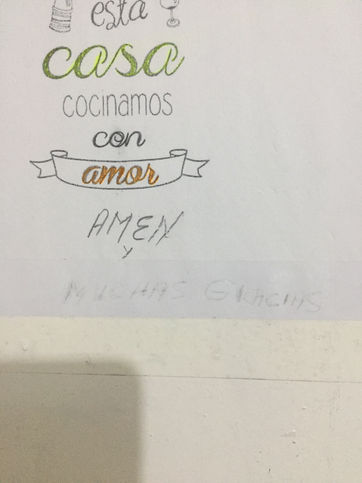 esta
casa
cocinamos
con
amor
AMEN
Y
MUCHAS GRACIAS